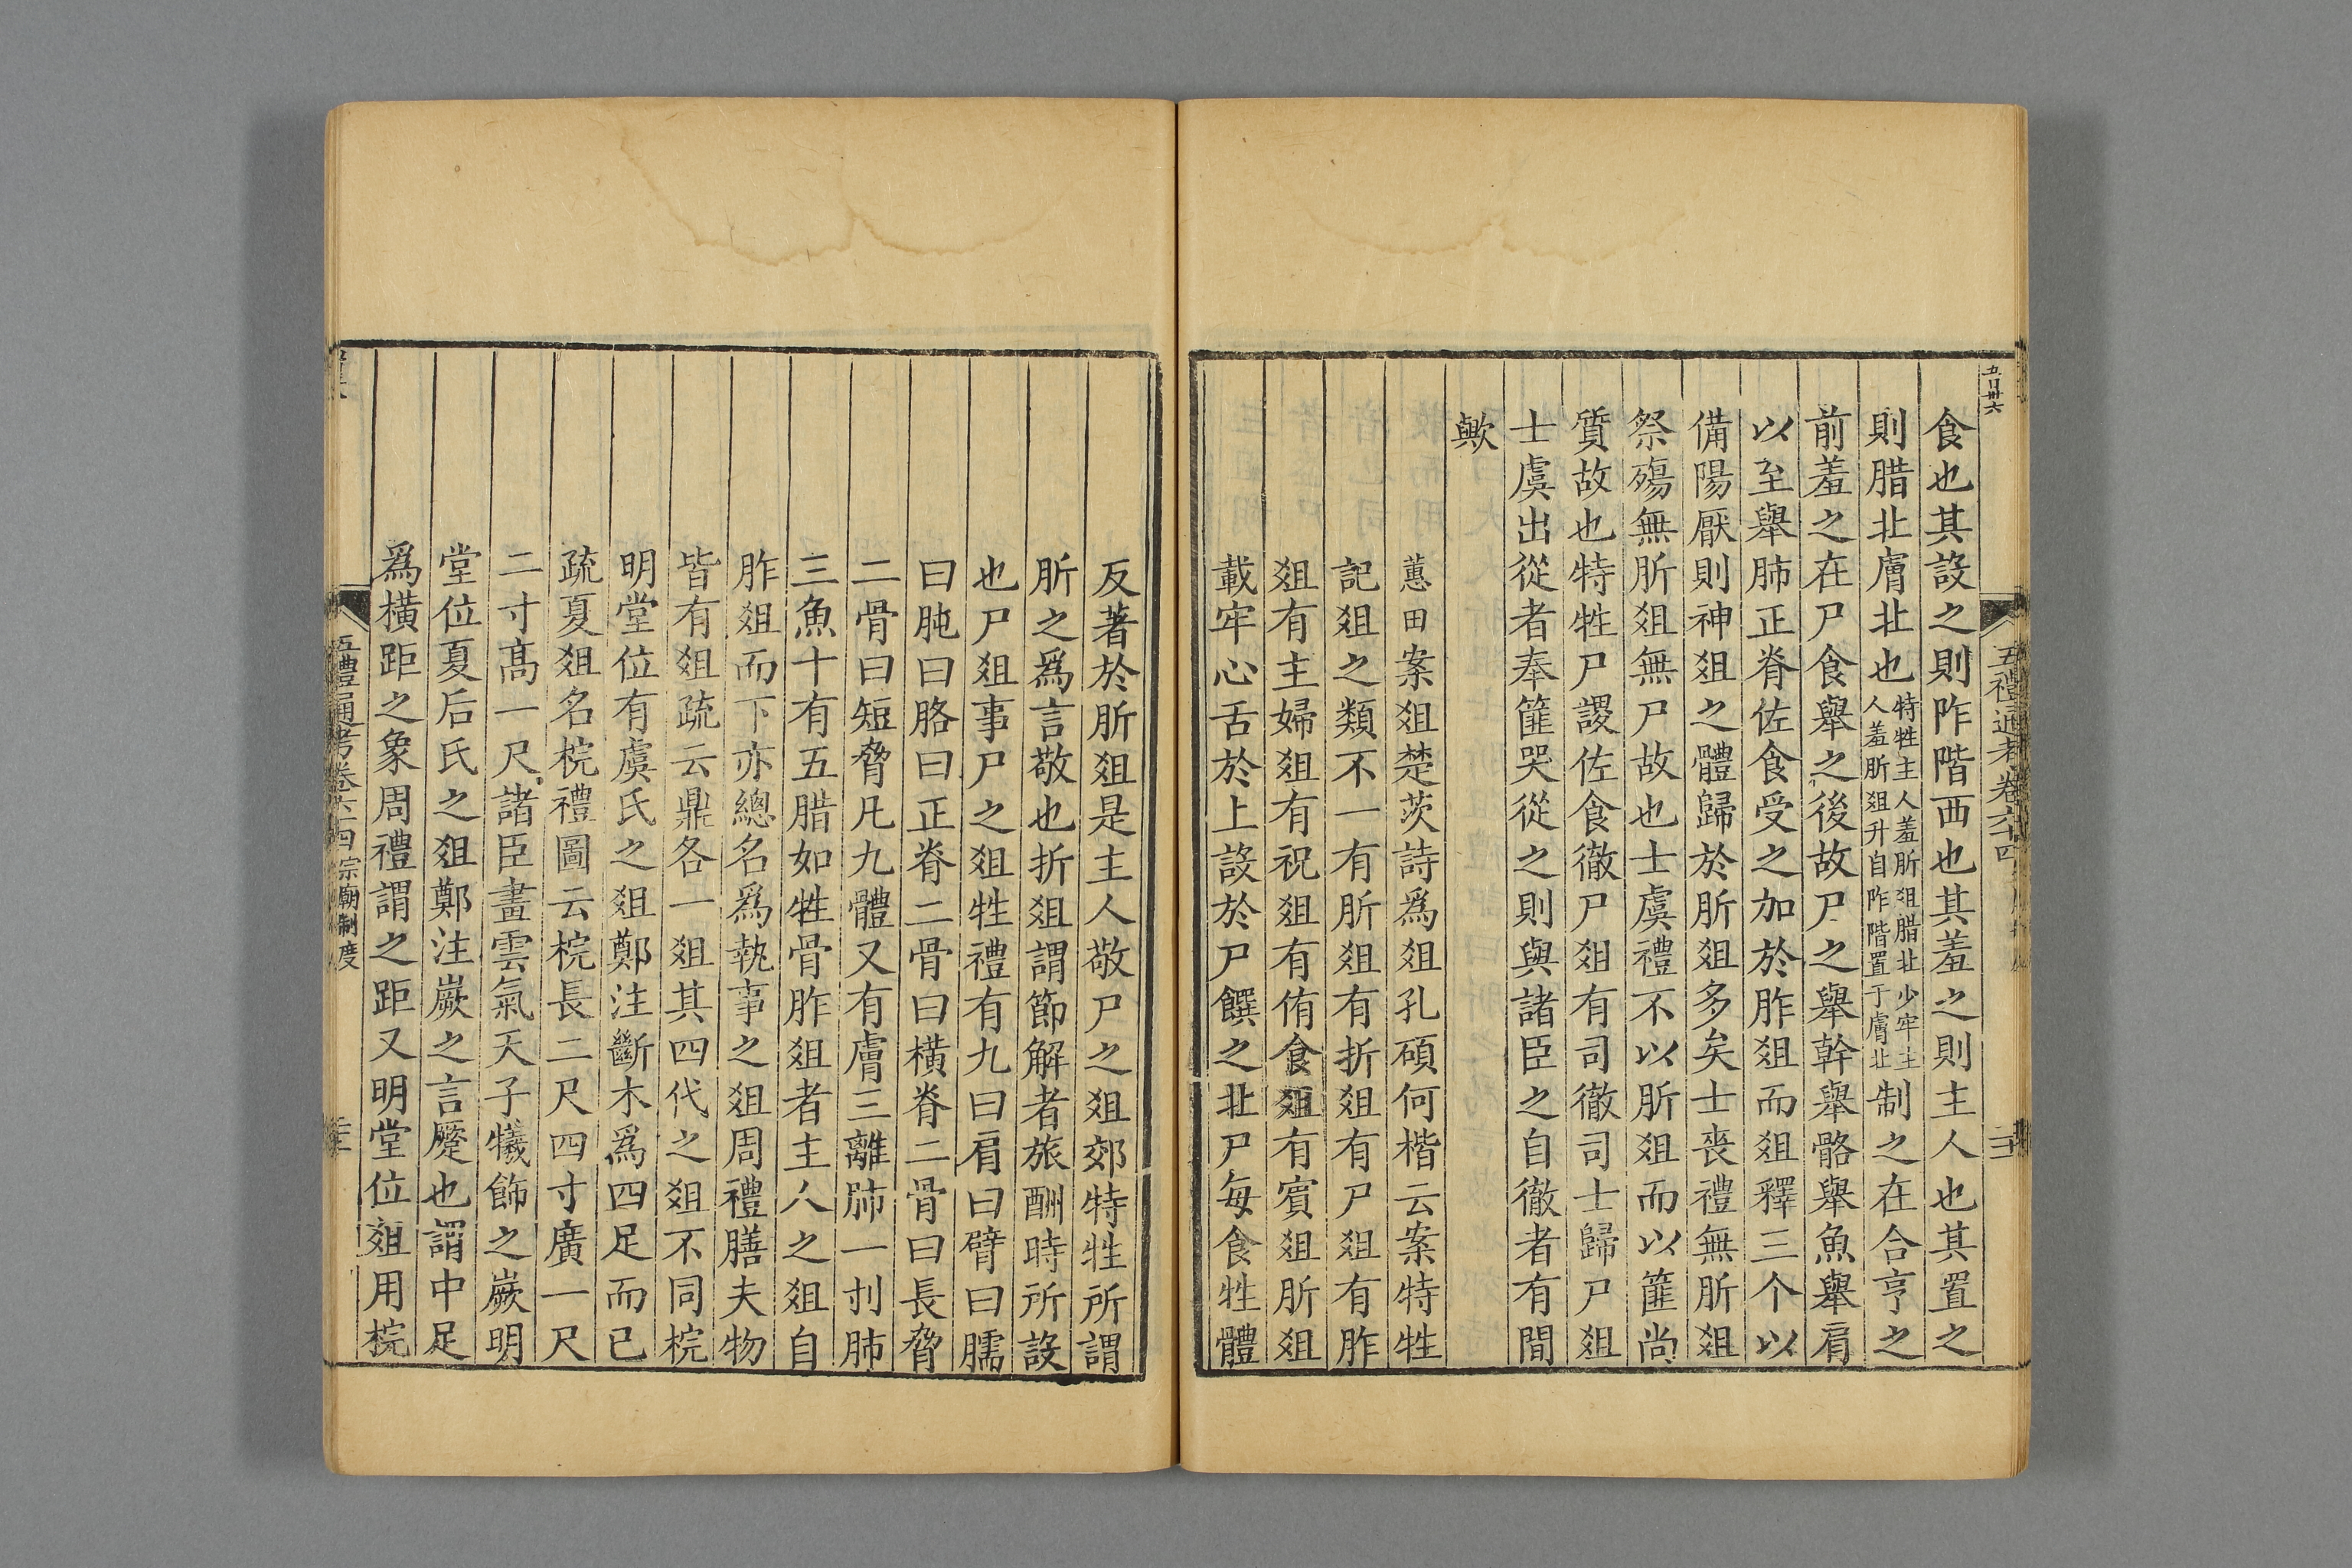 五百卅六
五禮通考卷六十四
食也其設之則阼階西也其羞之則主人也其置之
則腊北膚北也特牲主人羞肵俎腊北少牢主人羞肵俎升自阼階置于膚北制之在合亨之
前羞之在尸食舉之後故尸之舉幹舉骼舉魚舉肩
以至舉肺正脊佐食受之加於胙俎而俎釋三个以
備陽厭則神俎之體歸於肵俎多矣士喪禮無肵俎
祭殤無肵俎無尸故也士虞禮不以肵俎而以篚尚
質故也特牲尸謖佐食徹尸俎有司徹司士歸尸俎
士虞出從者奉篚哭從之則與諸臣之自徹者有間
歟
蕙田案俎楚茨詩為俎孔碩何楷云案特牲
記俎之類不一有肵俎有折俎有尸俎有胙
俎有主婦俎有祝俎有侑食俎有賓俎肵俎
載牢心舌於上設於尸饌之北尸每食牲體
反著於肵俎是主人敬尸之俎郊特牲所謂
肵之爲言敬也折俎謂節解者旅酬時所設
也尸俎事尸之俎牲禮有九曰肩曰臂曰臑
曰肫曰胳曰正脊二骨曰橫脊二骨曰長脅
二骨曰短脅凡九體又有膚三離肺一刌肺
三魚十有五腊如牲骨胙俎者主人之俎自
胙俎而下亦總名爲執事之俎周禮膳夫物
皆有俎疏云鼎各一俎其四代之俎不同梡
明堂位有虞氏之俎鄭注斷木爲四足而已
疏夏俎名梡禮圖云梡長二尺四寸廣一尺
二寸髙一尺諸臣畫雲氣天子犧飾之嶡明
堂位夏后氏之俎鄭注嶡之言蹷也謂中足
爲橫距之象周禮謂之距又明堂位俎用梡
五禮通考卷六十四 宗廟制度